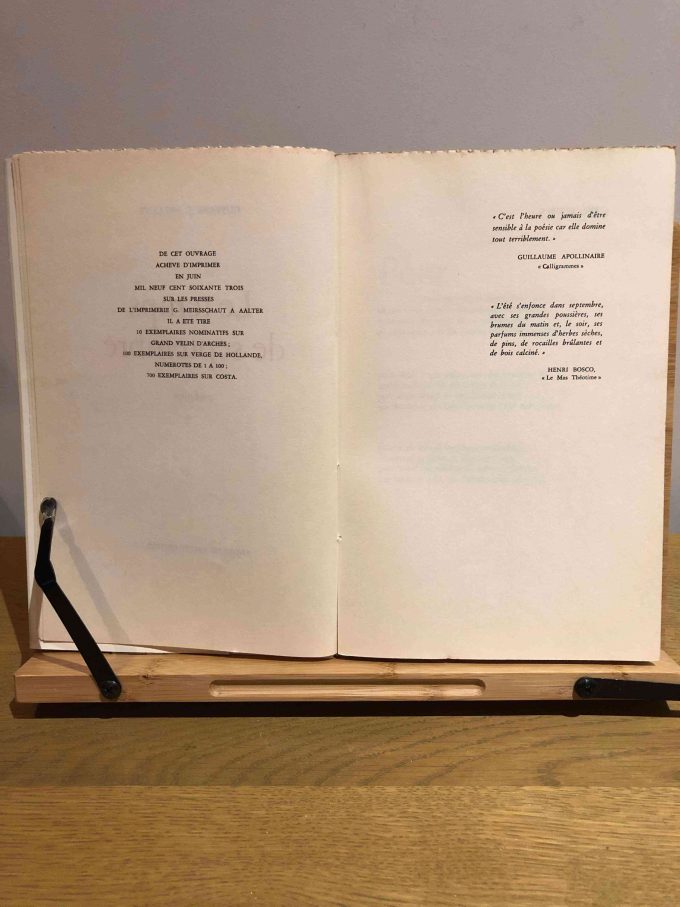 DE CET OUVRAGE
ACHEVE D'IMPRIMER
EN JUIN
MIL NEUF CENT SOIXANTE TROIS
SUR LES PRESSES
DE L'IMPRIMERIE G. MEIRSSCHAUT A AALTER
IL A ETE TIRE
10 EXEMPLAIRES NOMINATIFS SUR
GRAND VELIN D'ARCHES ;
100 EXEMPLAIRES SUR VERGE DE HOLLANDE,
NUMEROTES DE 1 A 100 ;
700 EXEMPLAIRES SUR COSTA.
« C'est l'heure ou jamais d'être
sensible à la poésie car elle domine
tout terriblement. »
GUILLAUME APOLLINAIRE
« Calligrammes »
« L'été s'enfonce dans septembre,
avec ses grandes poussières, ses
brumes du matin et, le soir, ses
parfums immenses d'herbes sèches,
de pins, de rocailles brûlantes et
de bois calciné. »
HENRI BOSCO,
« Le Mas Théotime »